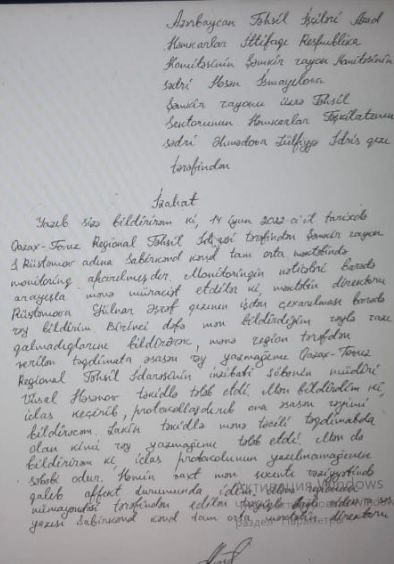 Azərbaycan Təhsil İşçiləri Azad
Həmkarlar İttifaqı Respublika
Komitəsinin Şəmkir rayon Komitəsinin
sədri Həsən İsmayılova
Şəmkir rayonu üzrə Təhsil
Sektorunun Həmkarlar Təşkilatının
sədri Əhmədova Zülfiyyə İdris qızı
tərəfindən
İzahat
Yazıb sizə bildirirəm ki, 14 iyun 2022-ci il tarixdə
Qazax-Tovuz Regional Təhsil İdarəsi tərəfindən Şəmkir rayon
Rüstəmov adına Sabirkənd kənd tam orta məktəbində
monitorinq aparılmışdır. Monitorinqin nəticəsi barədə
arayışla mənə müraciət etdilər ki, məktəbin direktoru
Rüstəmova Gülnar Əşrəf qızının işdən çıxarılması barədə
rəy bildirim. Birinci dəfə mən bildirdiyim rəylə razı
qalmadıqlarını bildirərək, mənə region tərəfdən
verilən təqdimata əsasən rəy yazmağımı Qazax-Tovuz
Regional Təhsil İdarəsinin inzibati şöbənin müdiri
Vüsal Həsənov təkidlə tələb etdi. Mən bildirdim ki,
iclas keçirib, protokollaşdırıb ona əsasən rəyimi
bildirəcəm. Lakin təkidlə mənə təcili təqdimatda
olan kimi rəy yazmağımı tələb etdi. Mən də
bildirirəm ki, iclas protokolunun yazılmamağının
səbəbi odur. Həmin vaxt mən vəziyyətində
qalıb affekt durumunda idim.
nümayəndəsi tərəfindən edilən təzyiqlə
yazısı Sabirkənd kənd tam orta məktəbin direktoru
Активация Windows
раздел "Параметры"